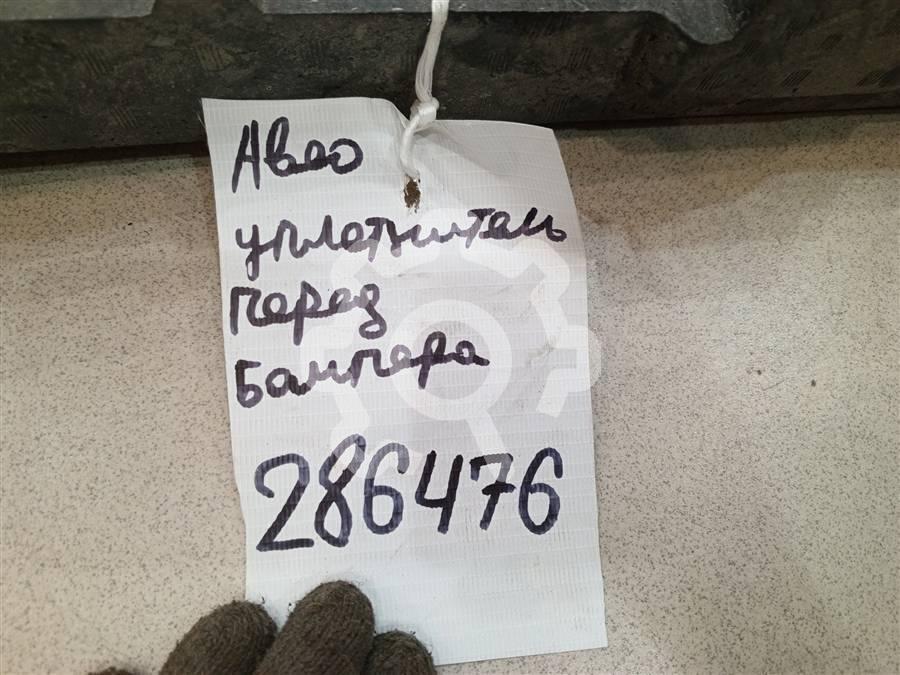 Авео
уплотнитель
перед
бампера
286476